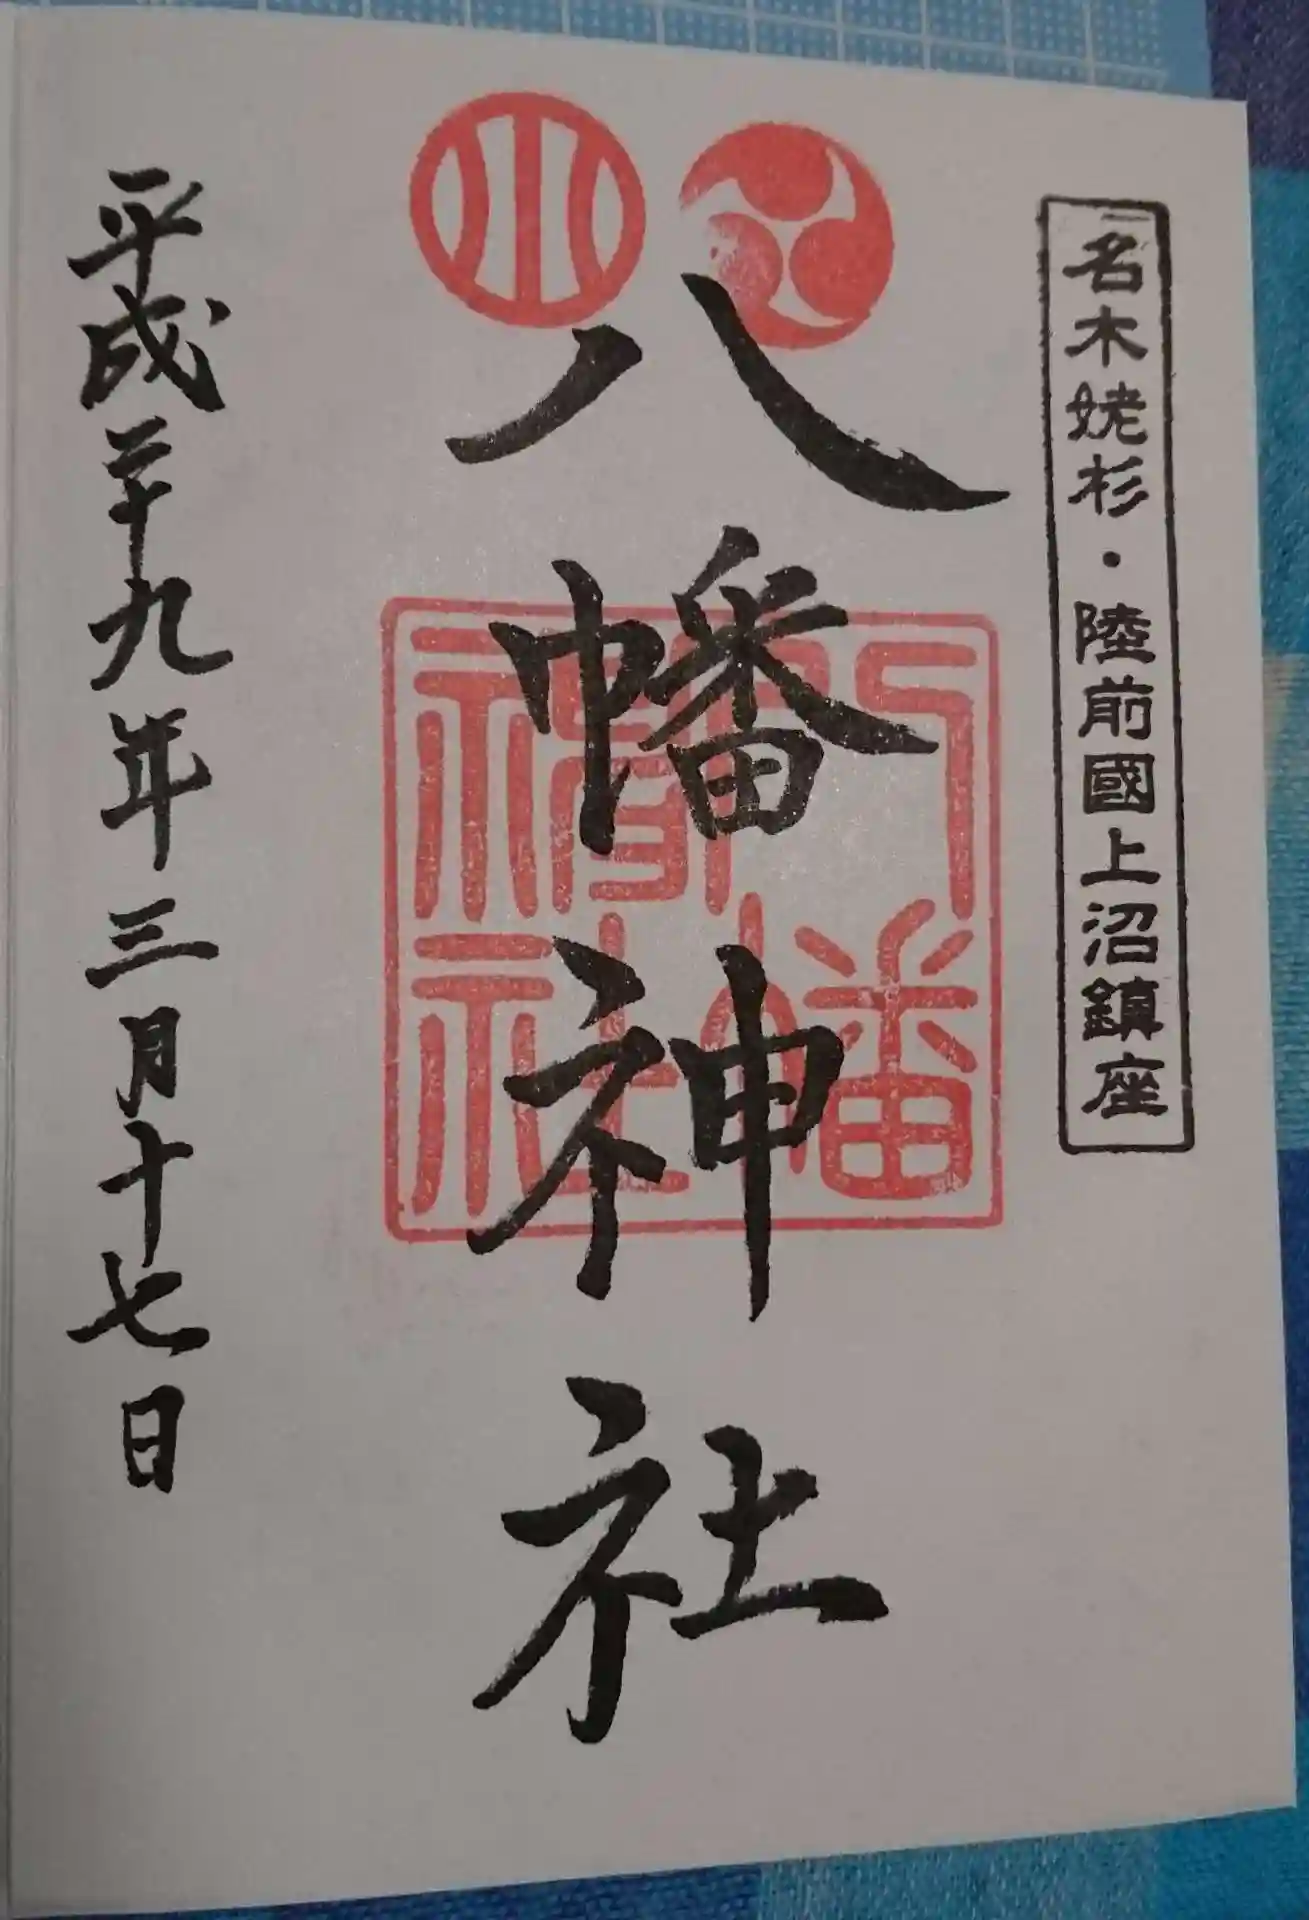 名木姥杉・陸前國上沼鎮座
八幡神社
八幡神社
平成二十九年三月十七日